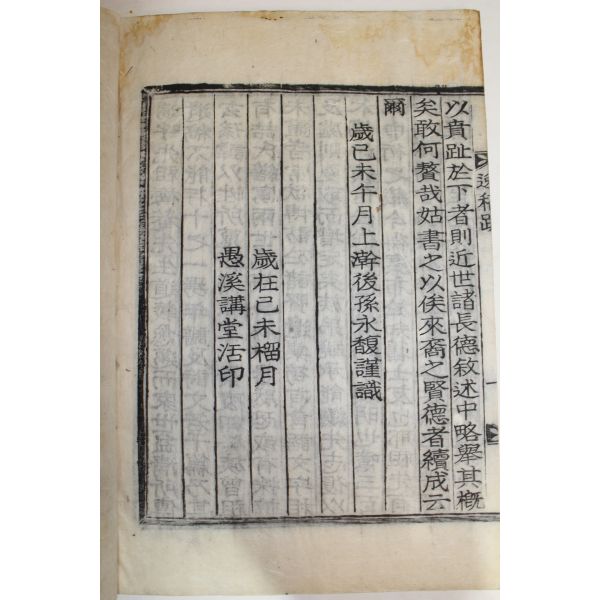 逸稿跋
以賁趾於下者則近世諸長德敘述中略舉其槪
矣敢何贅哉姑書之以俟來裔之賢德者續成云
爾
歲己未午月上澣後孫永馥謹識
歲在己未榴月
愚溪講堂活印